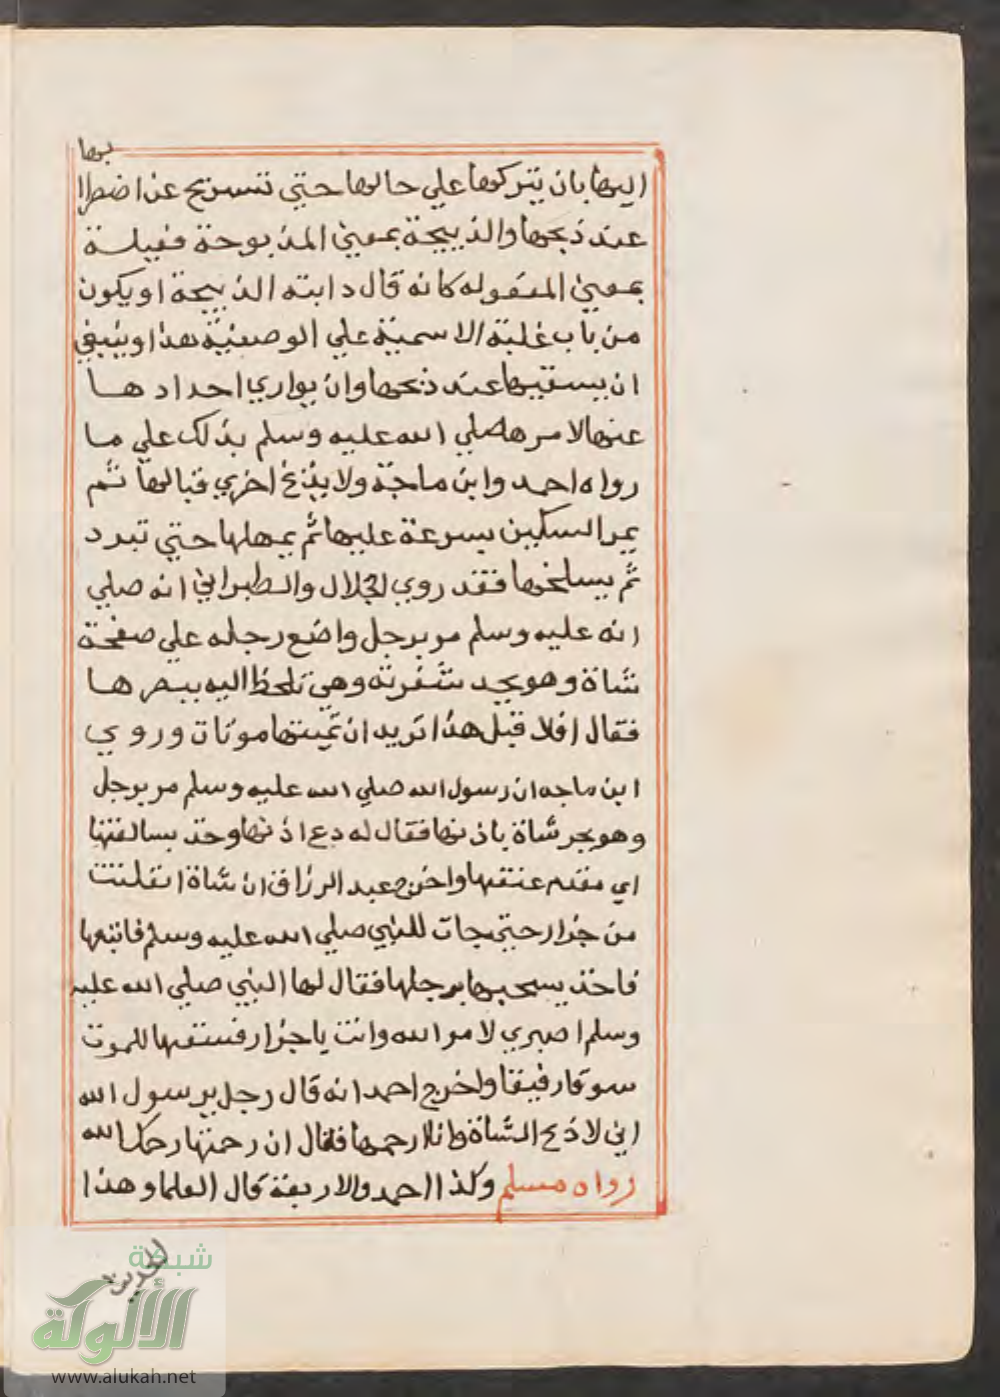 بها
اليها بان يتركها علي حالها حتي تستريح عن اضطرا
عند ذبحها والذبيحة بمعني المذبوحة فعيلة
بمعني المفعوله كانه قال دابته الذبيحة او يكون
من باب غلبة الاسمية علي الوصفية هذا وينبغي
ان يستيبها عند ذبحها وان يواري احدادها
عنها لامره صلي الله عليه وسلم بذلك علي ما
رواه احمد وابن ماجة ولا يذبح اخري قبالها ثم
يمر السكين بسرعة عليها ثم يمهلها حتي تبرد
ثم يسلخها فقد روي الخلال والطبراني انه صلي
الله عليه وسلم مر برجل واضع رجله علي صفحة
شاة وهو يحد شفرته وهي تلحظ اليه ببصرها
فقال افلا قبل هذا تريد ان تميتها موتات وروي
ابن ماجه ان رسول الله صلي الله عليه وسلم مر برجل
وهو يجر شاة باذنها فقال له دع اذنها وخذ بسالفتها
اي مقدم عنقها واخرج عبد الرزاق ان شاة انفلتت
من جزار حتي جات للنبي صلي الله عليه وسلم فاتبعها
فاخذ يسحبها برجلها فقال لها النبي صلي الله عليه
وسلم اصبري لامر الله وانت يا جزار فسقها للموت
سوقا رفيقا واخرج احمد انه قال رجل يرسول الله
اني لاذبح الشاة وانا ارحمها فقال ان رحمتها رحمك الله
رواه مسلم وكذا احمد والاربعة قال العلما وهذا
الحديث
شبكة
الألوكة
www.alukah.net